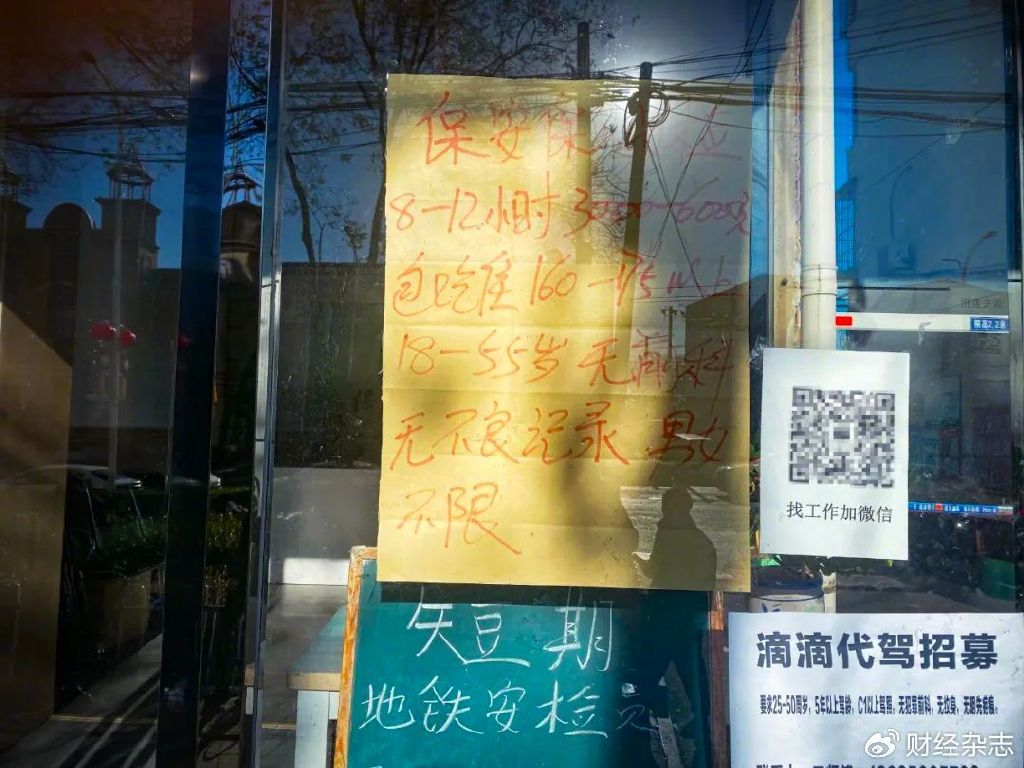 保安保
8-12小时 3000-6000元
包吃住 160一75以上
18-55岁 无前科
无不良记录 男女
不限
短期
地铁安检
找工作加微信
限高2.2米
滴滴代驾招募
要求25-50周岁，5年以上驾龄，C1以上驾照，无犯罪前科，无纹身，无眼先疾病；
财经杂志